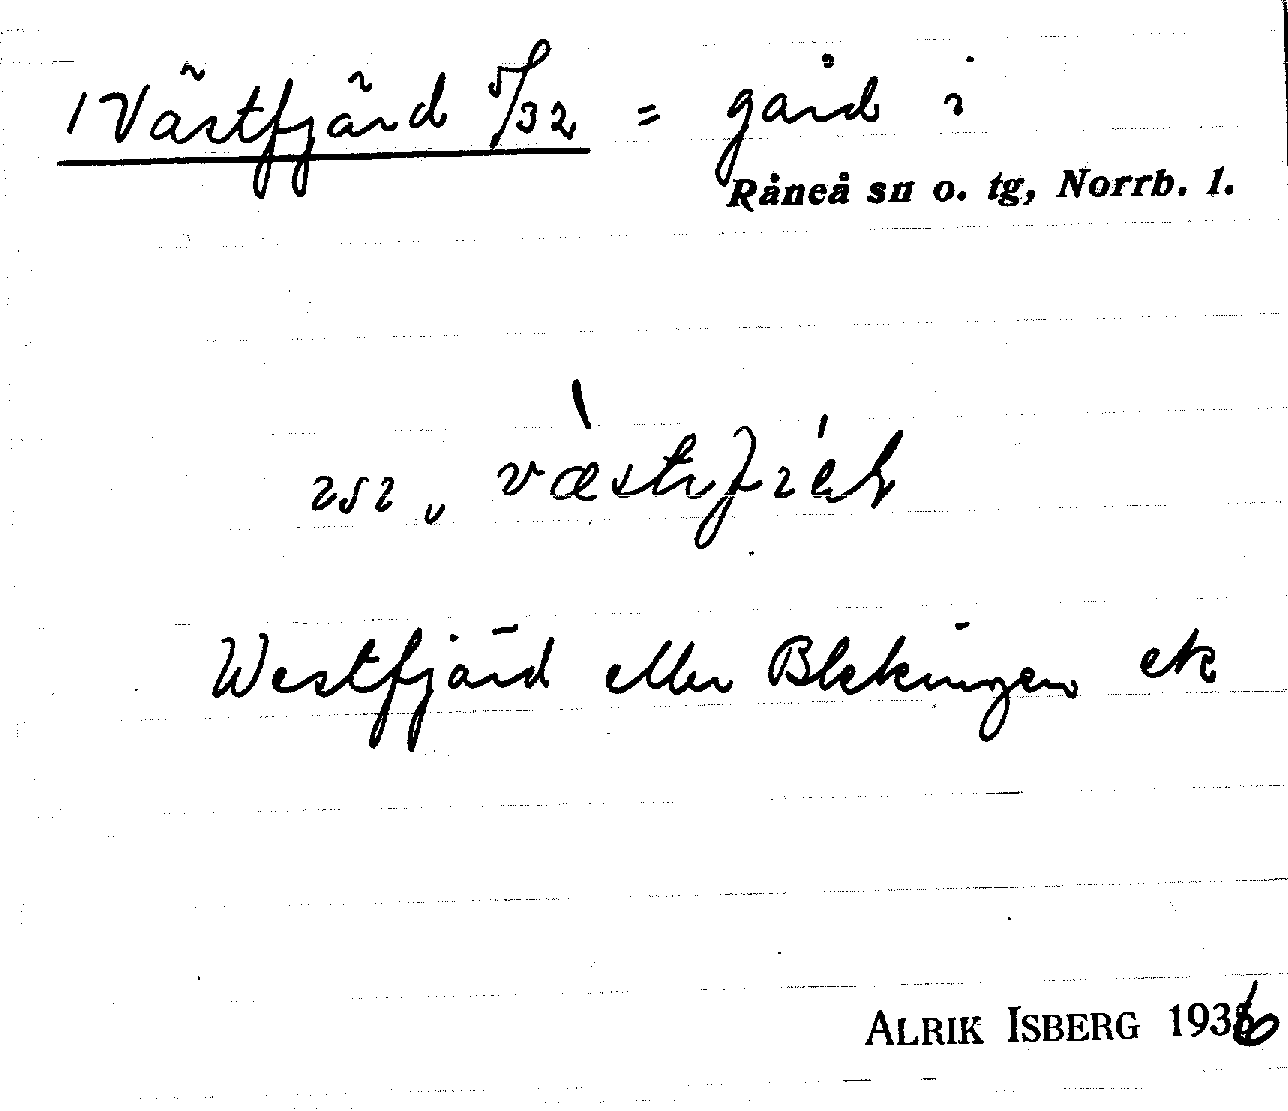 1 Västfjärd 5/32 = gård i
Råneå sn o. tg, Norrb. l.
Westfjärd eller Blekingen ek
ALRIK ISBERG 1936